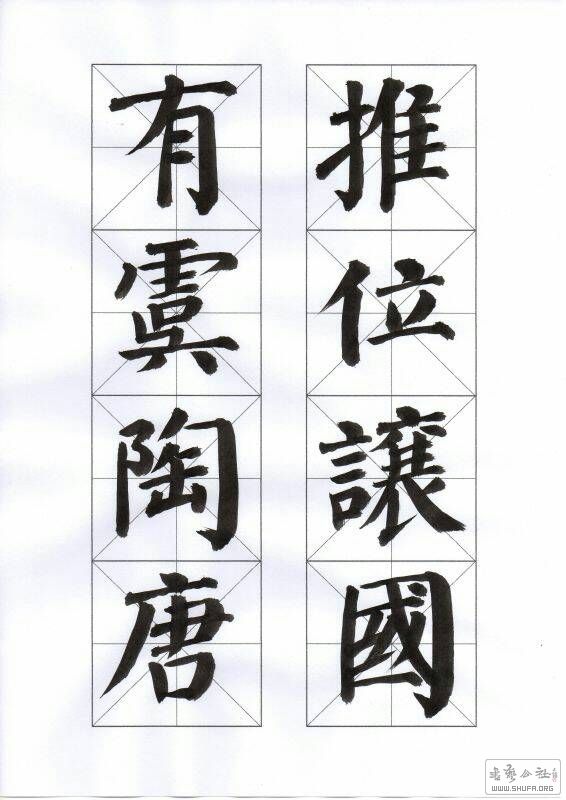 推位讓國
有虞陶唐
WWW.SHUFA.ORG